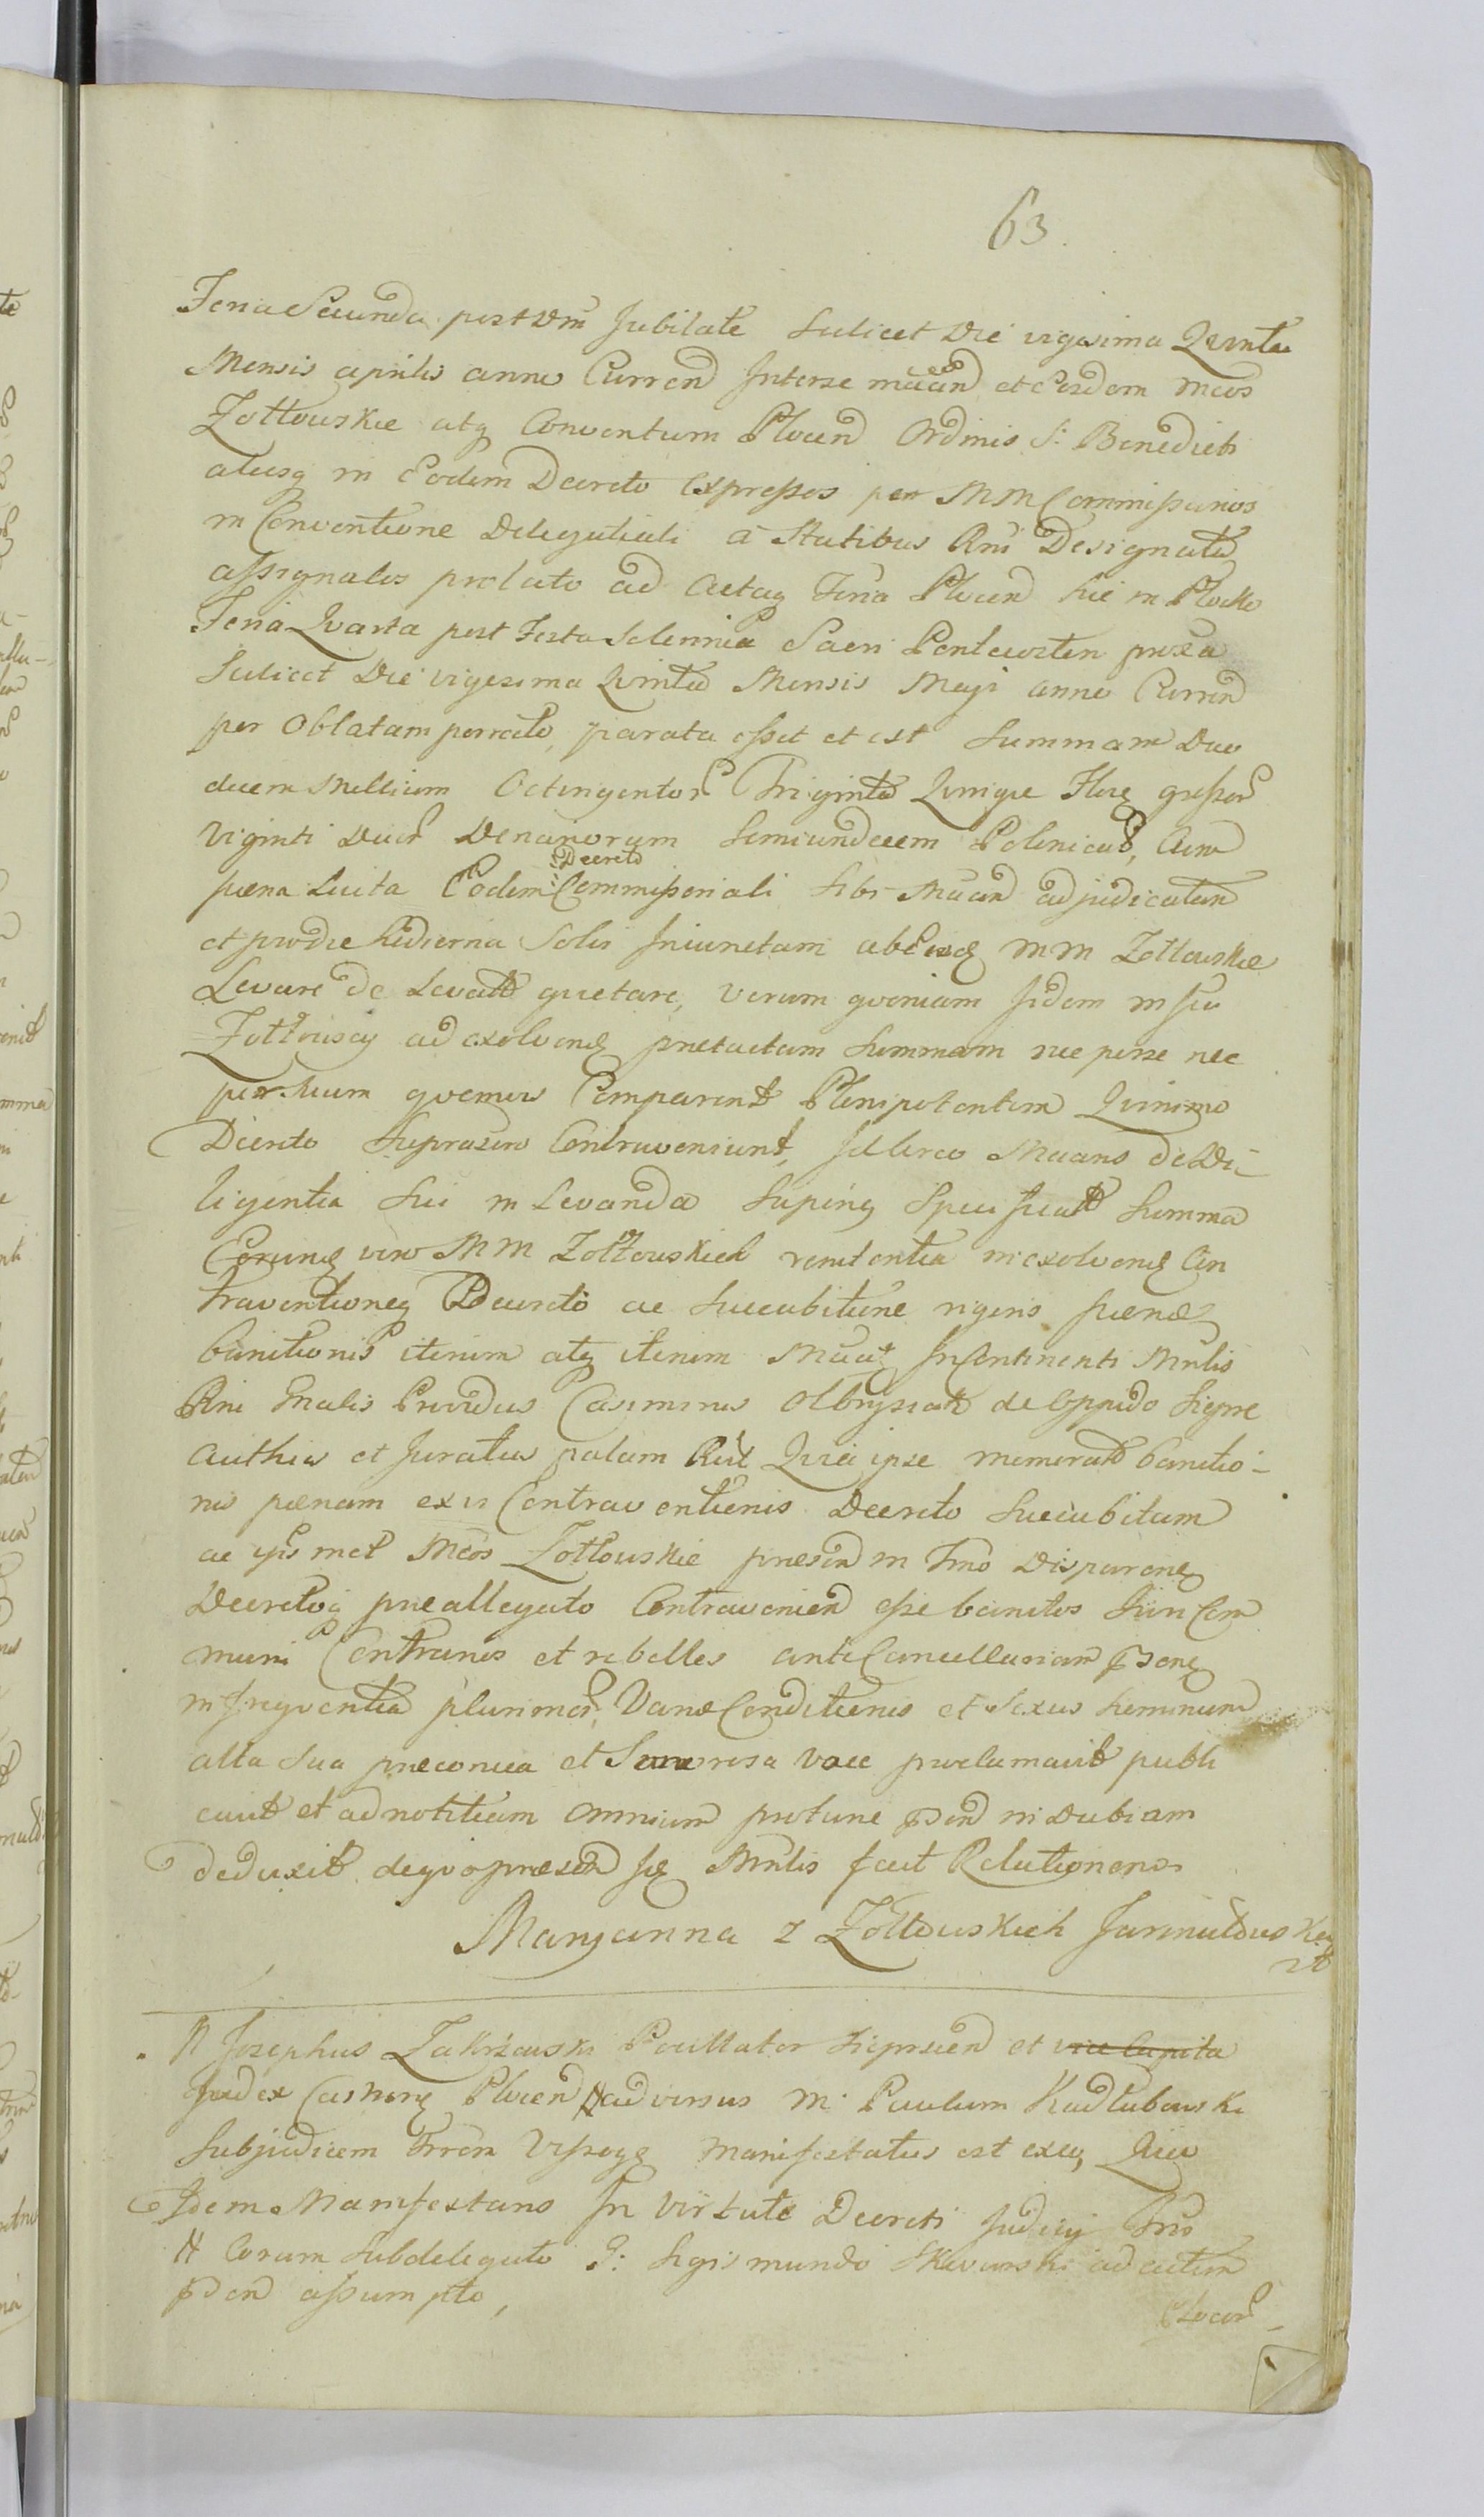 63
Feria Secunda post Dm̃ Jubilate Scilicet Die vigesima Quinta
Mensis aprilis anno Curren Interse et Eosdem Mcos
Zołtowskie atq Conventum Plocen Ordinis S: Benedicti
aliosq in Eodem Decreto Expressos per MM Commissarios
in Conventione Delegatiali à Statibus Rni Designatis
assignatos prolato ad Actaq Plocen hic in Plocko
Feria Qvarta post Festa Solennia Sacri Pentecosten proxa
Scilicet Die vigesima Qvinta Mensis Maji anno Curren
per Oblatam porrecto, parata esset et est Summam Duo
decem Millium Octingentor Triginta Qvinqve Flor grossor
Viginti Duor Denariorum Semiundecem Polonical, Cum
pæna Luita Eodem Decreto Commissoriali Sibi adjudicatam
et prodie hodierna Solvi Iniunctam ab Eisdq MM Zołtowskie
Levare de Levatis qvietare, verum qvoniam Iidem
Zołtowscy ad exolvend prætactam Summam nec perse nec
per suum qvemvis Comparent Plenipotentem Qvinimo
Decreto Suprascro Contraveniunt, Idcirco Mcans de Di-
ligentia Sui in Levanda Specificat Summa
Eorunq vero MM Zołtowskich renitentia in exolvend Con
traventioneq Decreto ac Succubitione rigoris pænæ
banitionis iterum atq iterum In Continenti Mnlis
Rni Gnalis Providus Casimirus Olbrysiak de Oppido Siepre
Authius et Juratus palam Qvia ipse memorat banitio-
nis pænam ex vi Contraventionis Decreto Succubitam
ac ipsmet Mcos Zołtowskie præsen in Disparend
Decretoq præallegato Contravenien esse banitos Juri Com
muni Contrarios et rebelles ante Cancellariam
in freqventia plurimor, Variæ Conditionis et Sexus hominum
alta Sua præconica et Sonorosa Voce proclamavit publi
cavit et ad notitiam Omnium protunc in Dubiam
deduxit, deqvo præsen Mnlis fecit Relationem
Maryanna z Zołtowskich Jarnułtowska

N Josephus Zakrzewski Pocillator Sieprcen et vice Capita
Judex Castren Plocen adversus M: Paulum Kadłubowski
Subjudicem Vissogr Manifestatus est exeo, Qvia
Idem Manifestans In Virtute Decreti Judicij
H Coram Subdelegato G: Sigismundo ad actum
assumpto,
Plocen